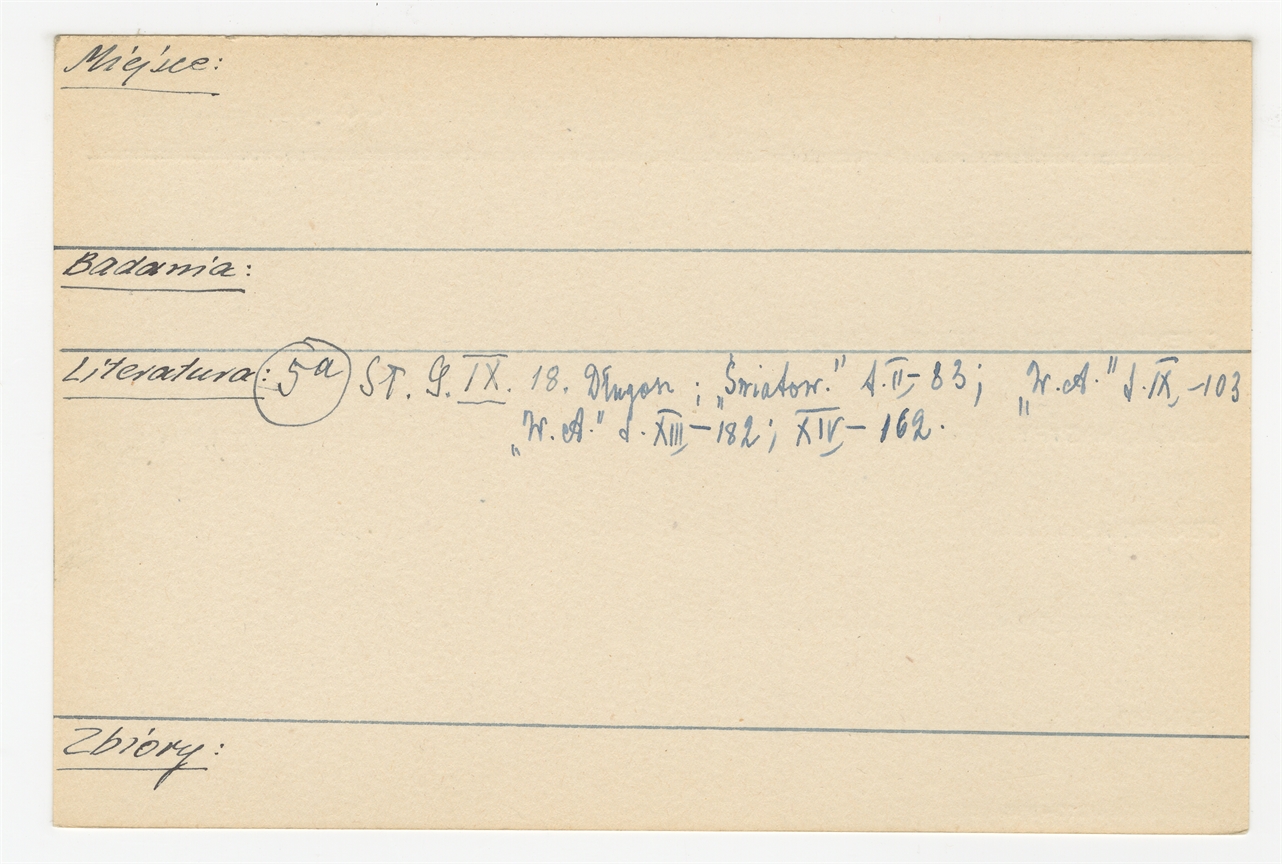 Miejsce:
Badania:
Literatura: 5a ST. G. IX. 18. Długosz; „Światow." t. II,- 83; „W.A." t. IX,-103
„W.A." t. XIII,-182; XIV,- 162.
Zbiory: